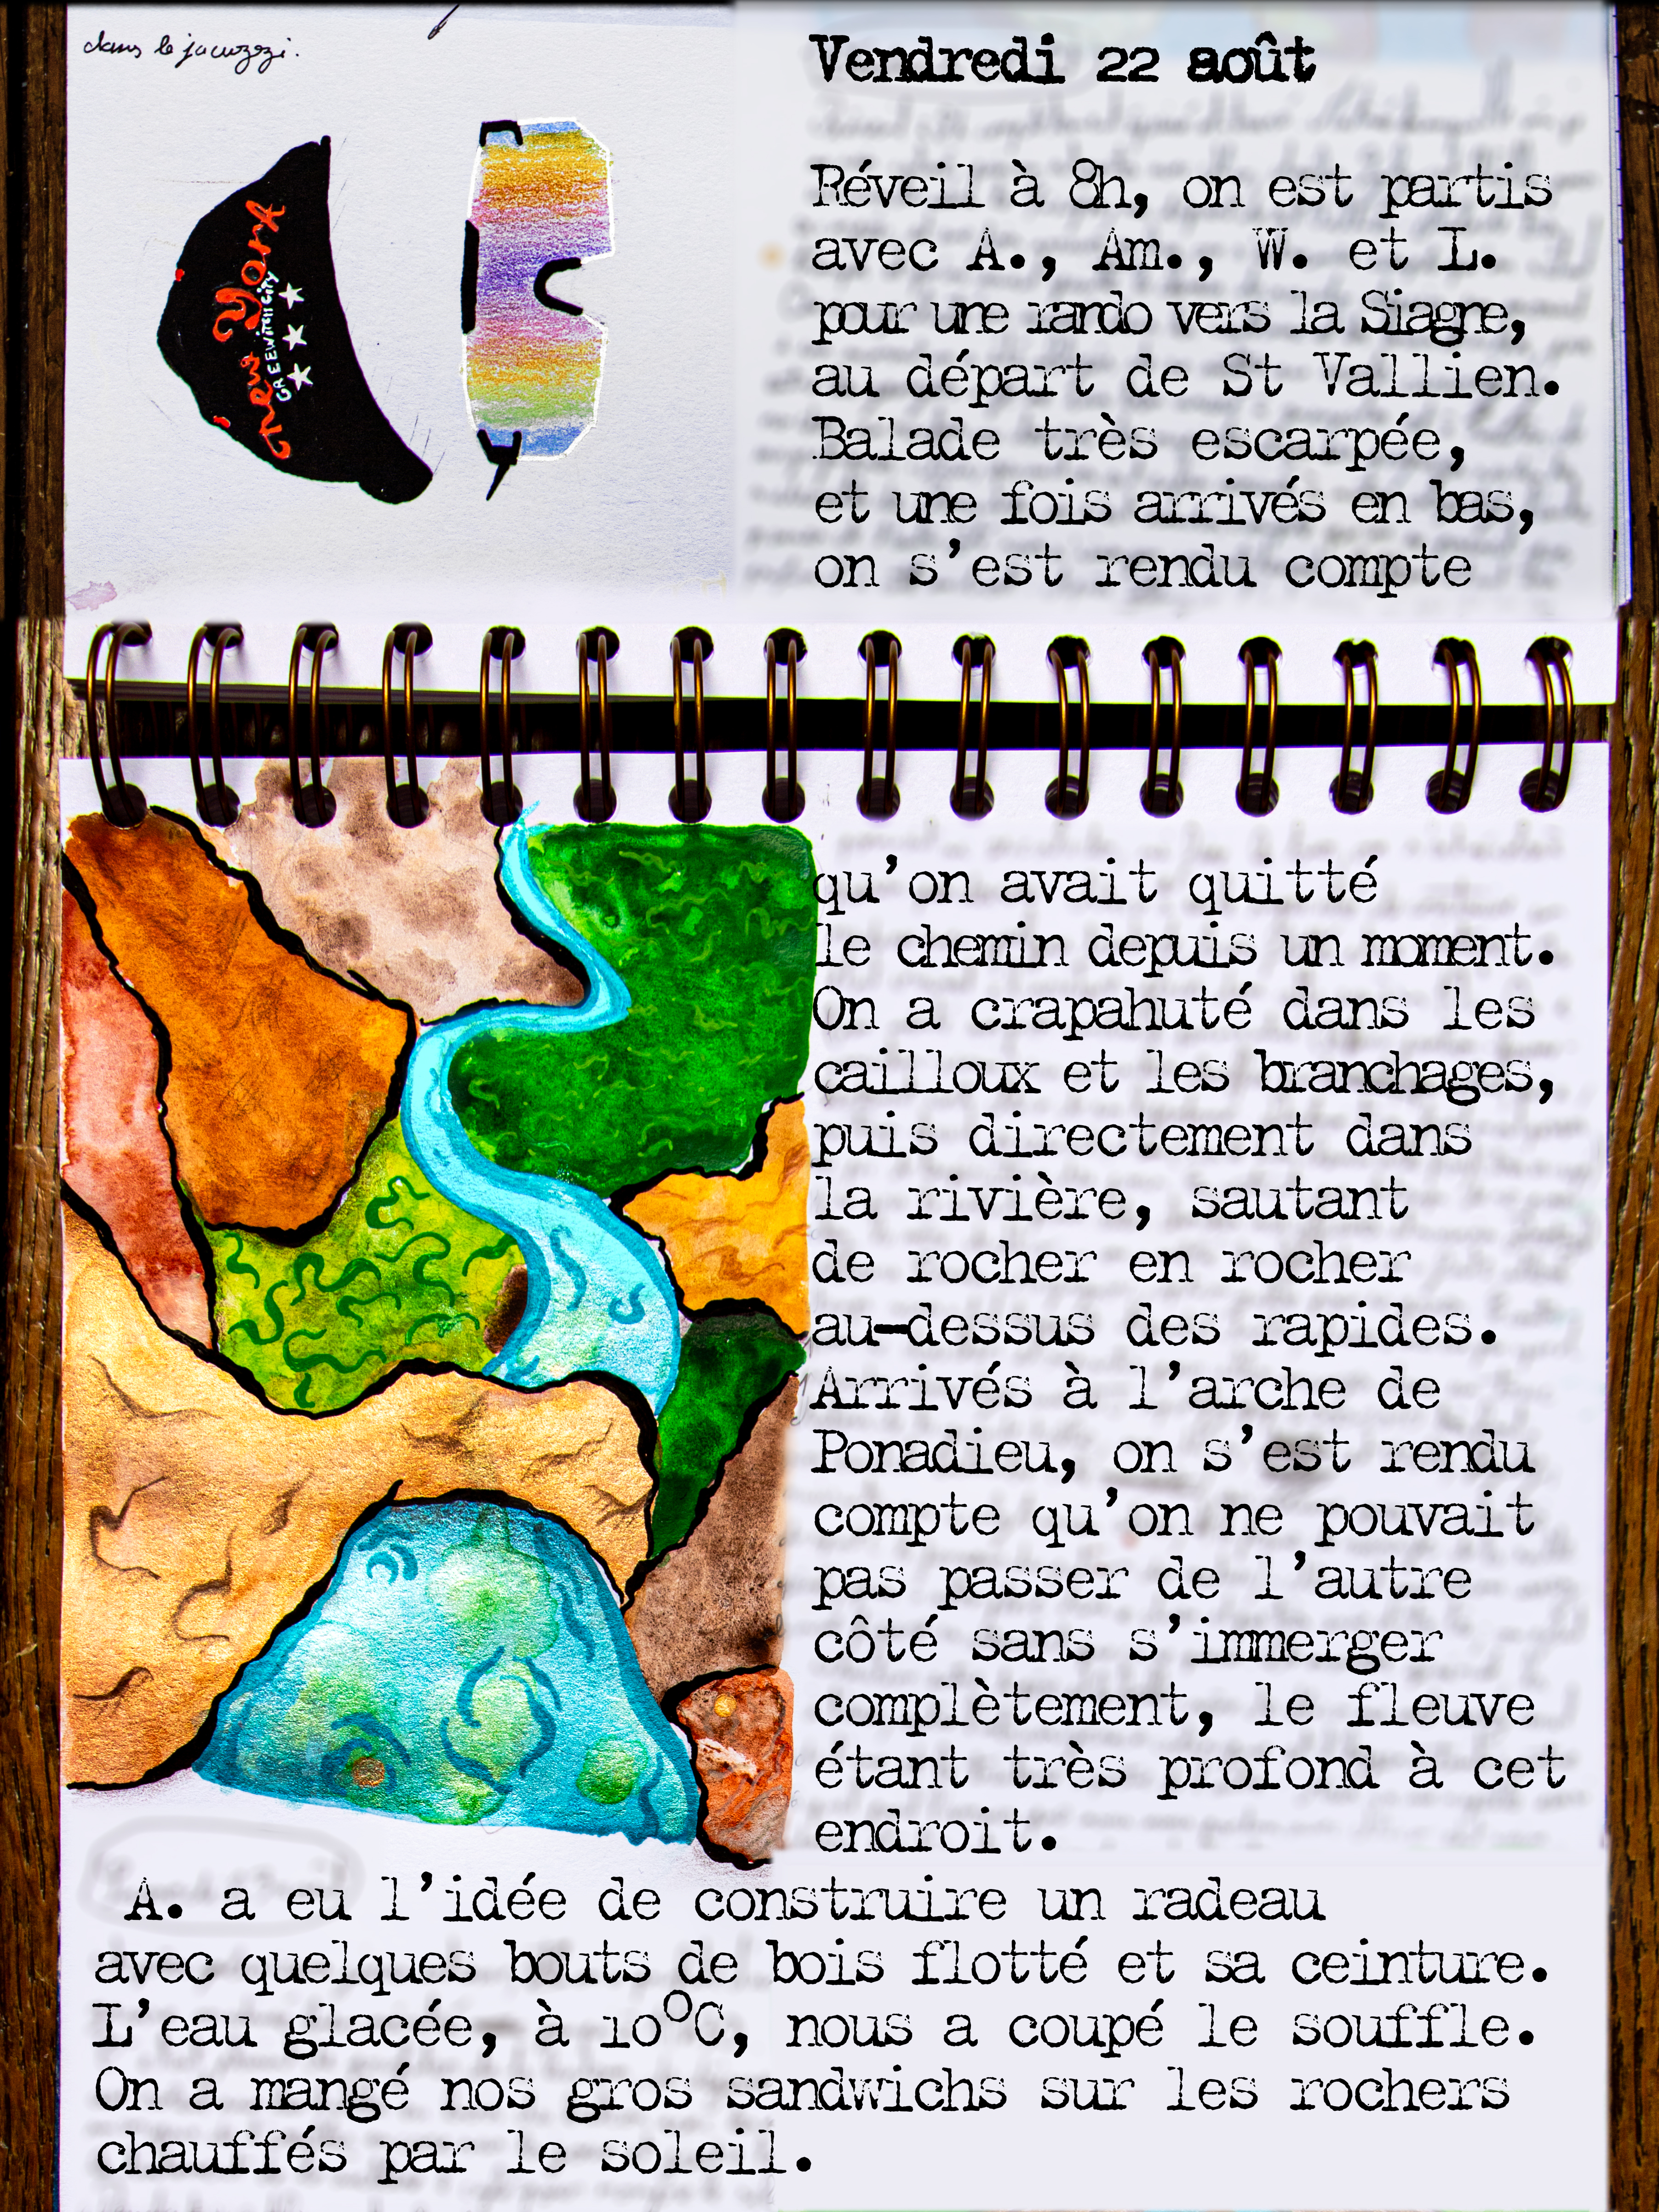 dans le jacuzzi.
new York
GREEWITCH CITY
Vendredi 22 août
Réveil à 8h, on est partis
avec A., Am., W. et L.
pour une rando vers la Siagne,
au départ de St Vallien.
Balade très escarpée,
et une fois arrivés en bas,
on s'est rendu compte
qu'on avait quitté
le chemin depuis un moment.
On a crapahuté dans les
cailloux et les branchages,
puis directement dans
la rivière, sautant
de rocher en rocher
au-dessus des rapides.
Arrivés à l'arche de
Ponadieu, on s'est rendu
compte qu'on ne pouvait
pas passer de l'autre
côté sans s'immerger
complètement, le fleuve
étant très profond à cet
endroit.
A. a eu l'idée de construire un radeau
avec quelques bouts de bois flotté et sa ceinture.
L'eau glacée, à 10°C, nous a coupé le souffle.
On a mangé nos gros sandwichs sur les rochers
chauffés par le soleil.